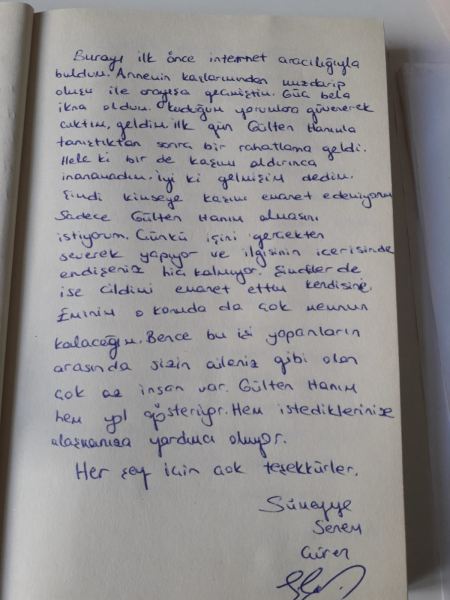 Burayı ilk önce internet aracılığıyla
buldum. Annemin kaşlarımdan muzdarip
oluşu ile arayışa geçmiştim. Güç bela
ikna oldum. Okuduğum yorumlara güvenerek
çıktım, geldim. İlk gün Gülten Hanımla
tanıştıktan sonra bir rahatlama geldi.
Hele ki bir de kaşımı aldırınca
inanamadım. İyi ki gelmişim dedim.
Şimdi kimseye kaşımı emanet edemiyorum
Sadece Gülten Hanım almasını
istiyorum. Çünkü işini gerçekten
severek yapıyor ve ilgisinin içerisinde
endişeniz hiç kalmıyor. Şimdilerde
ise cildimi emanet ettim kendisine.
Eminim o konuda da çok memnun
kalacağım. Bence bu işi yapanların
arasında sizin aileniz gibi olan
çok az insan var. Gülten Hanım
hem yol gösteriyor. Hem isteklerinize
ulaşmanıza yardımcı oluyor.
Her şey için çok teşekkürler.
Sümeyye